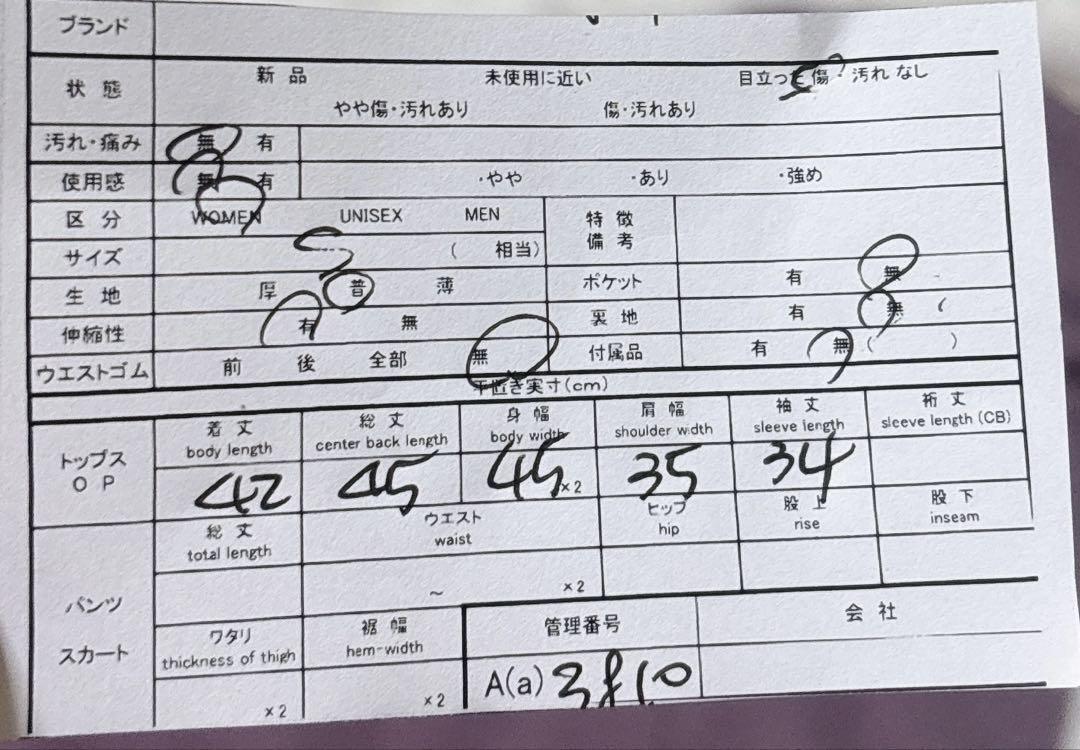 ブランド
状態 新品 未使用に近い 目立った傷・汚れなし
やや傷・汚れあり 傷・汚れあり
汚れ・痛み 無 有
使用感 無 有 ・やや ・あり ・強め
区分 WOMEN UNISEX MEN 特徴備考
サイズ S ( 相当)
生地 厚 普 薄 ポケット 有 無
伸縮性 有 無 裏地 有 無 (
ウエストゴム 前 後 全部 無 付属品 有 無 ( )
平置き実寸(cm)
トップス OP
着丈 総丈 身幅 肩幅 袖丈 裄丈
body length center back length body width shoulder width sleeve length sleeve length (CB)
42 45 45 ×2 35 34
パンツ スカート
総丈 ウエスト ヒップ 股上 股下
total length waist hip rise inseam
~ ×2
ワタリ 裾幅 管理番号 会社
thickness of thigh hem-width
×2 ×2 A(a)